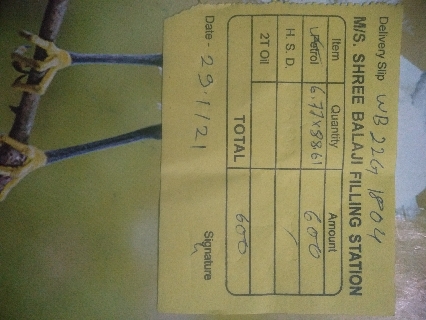 Delivery Slip WB 22G 1804
M/S. SHREE BALAJI FILLING STATION
Item Quantity Amount
Petrol 6.77x88.61 600
H. S. D.
2T Oil
TOTAL 600
Date - 29.1/21 Signature